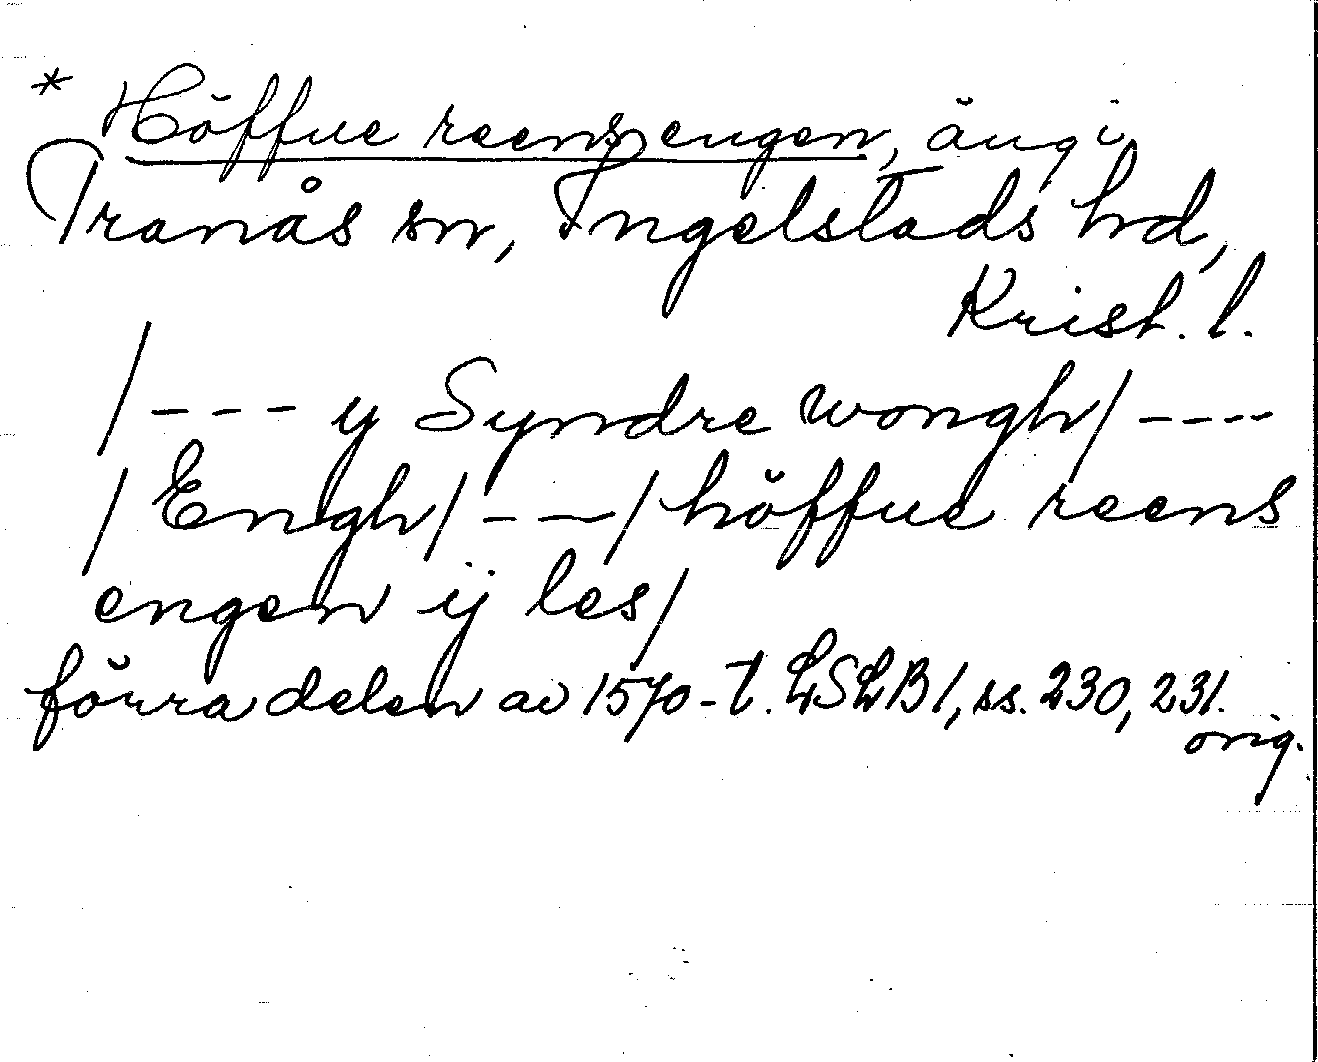 * Höffue reens engen, äng i
Tranås sn, Ingelstads hd,
Krist. l.
/--- y Syndre wongh/----
/Engh/---/höffue reens
engen ij les/
förra delen av 1570-t. LSLB1, ss. 230, 231.
orig.